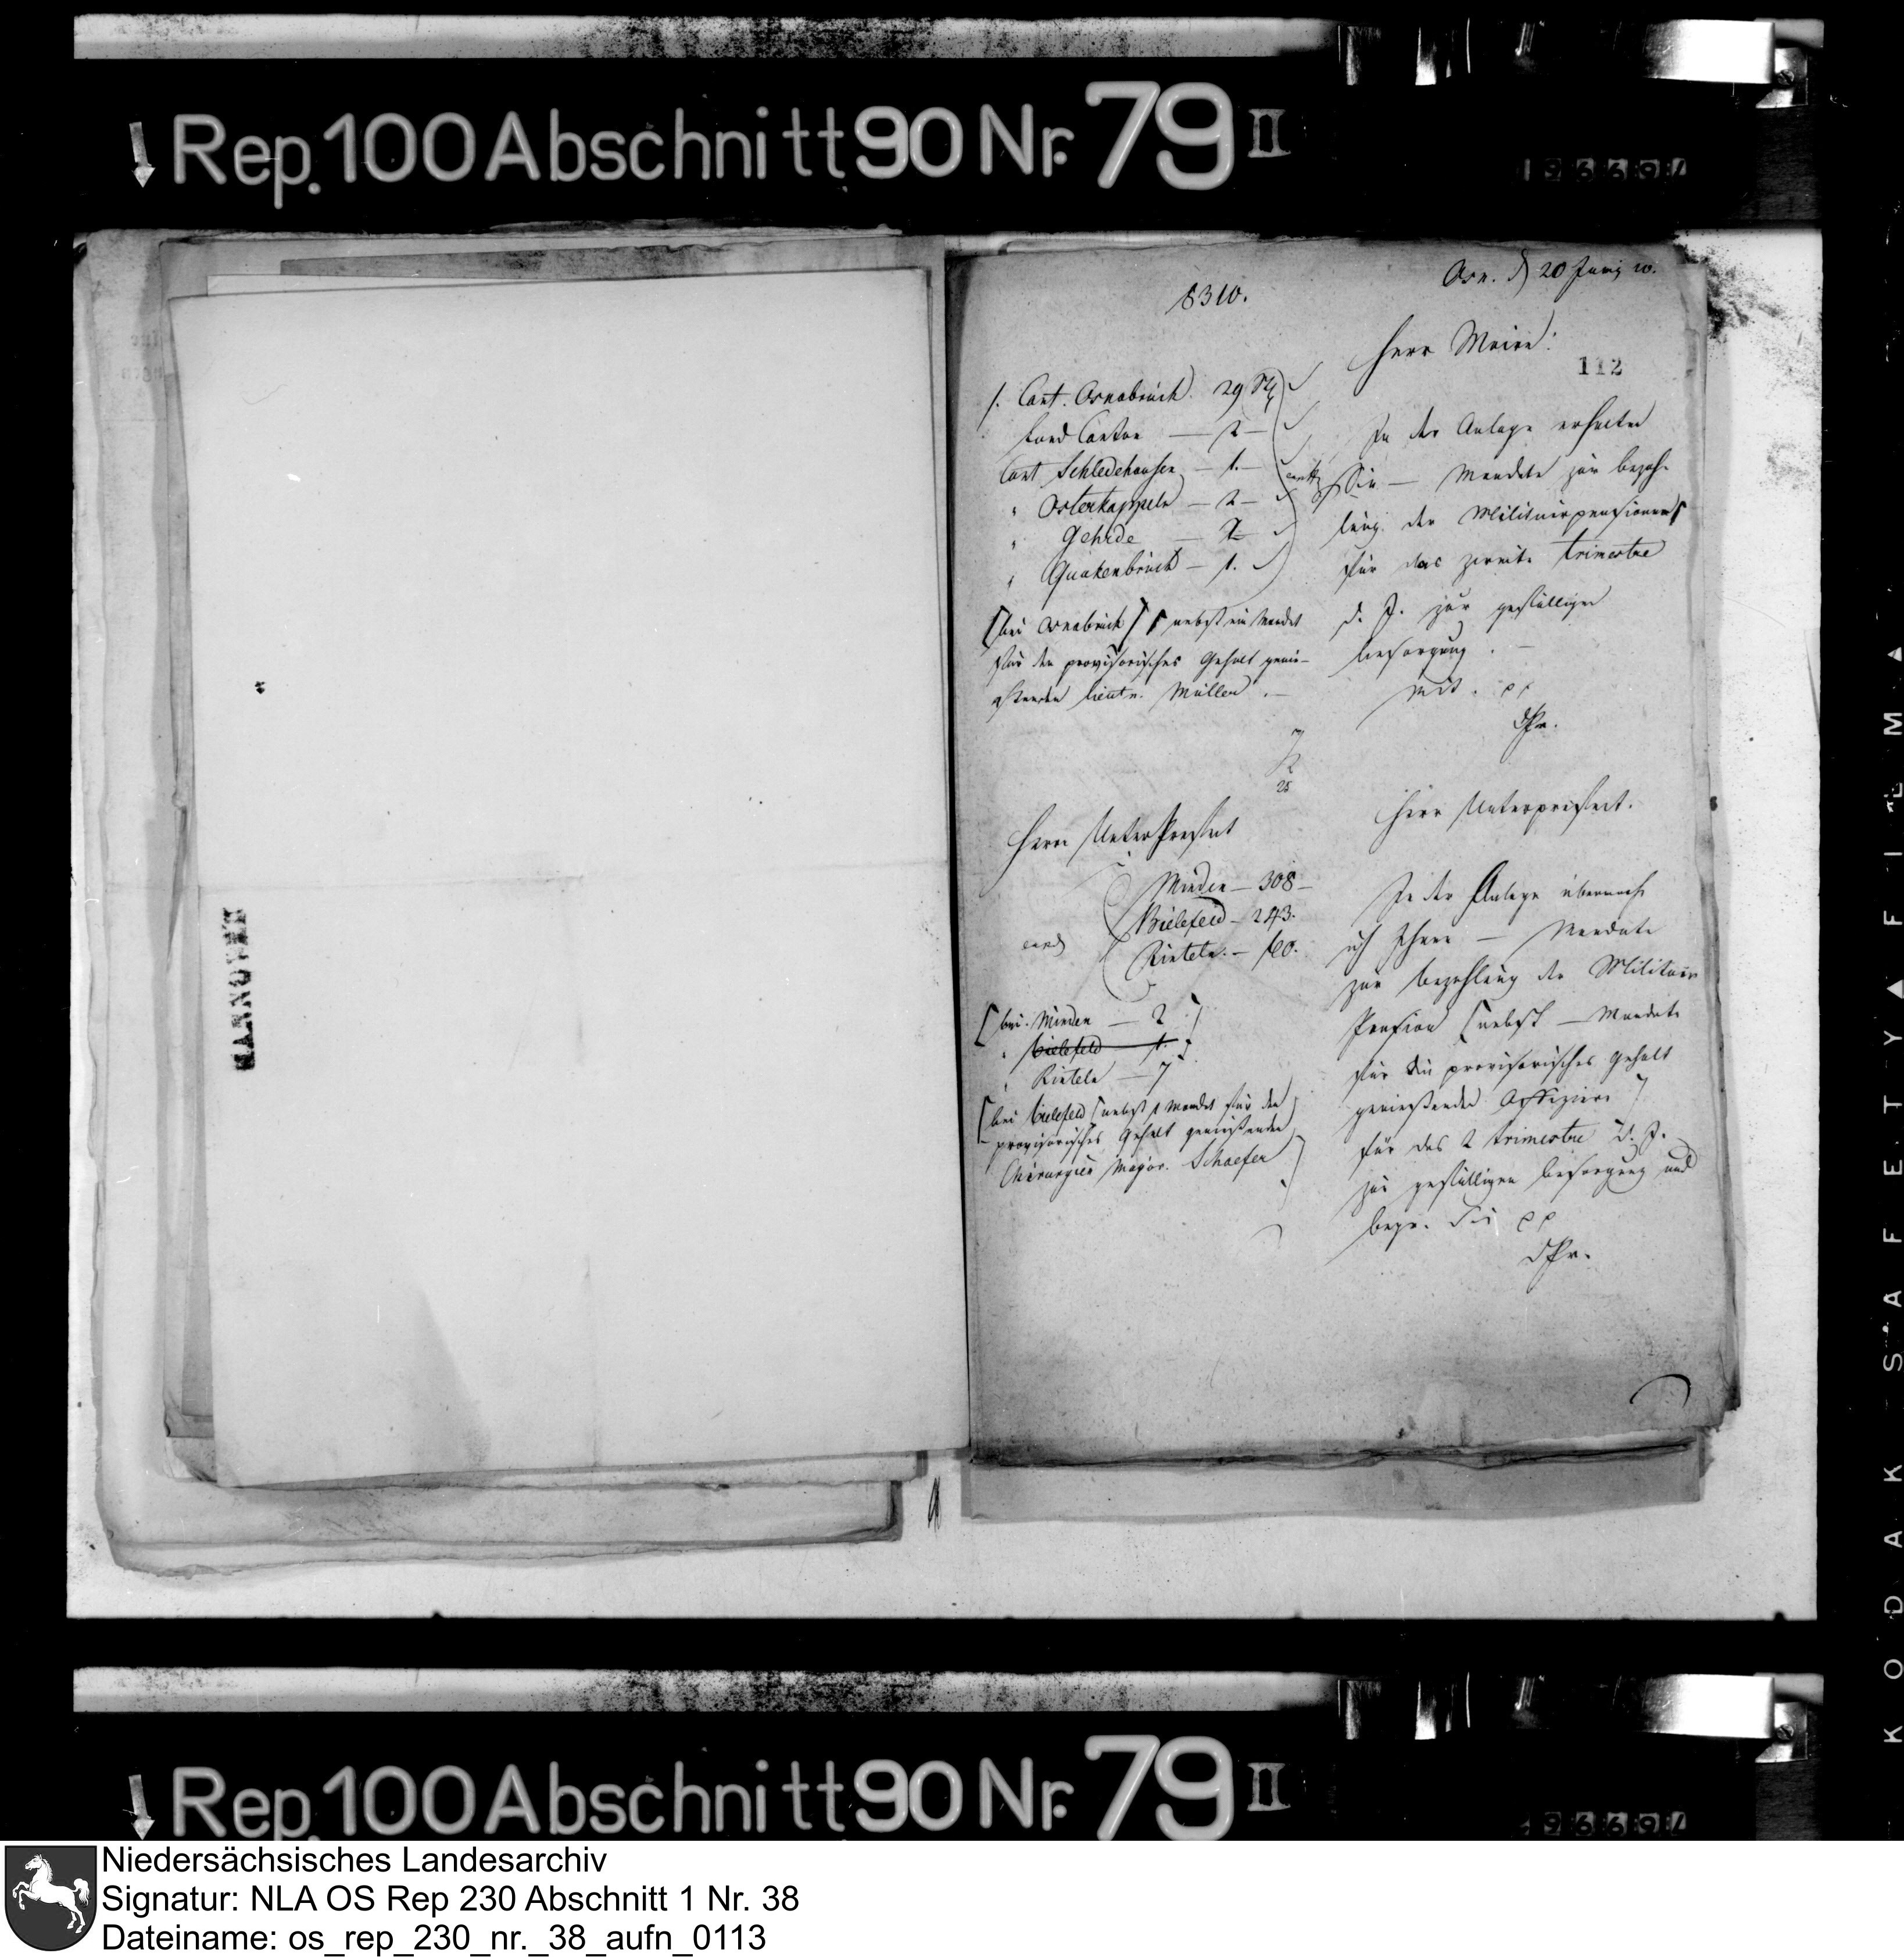 Rep. 100 Abschnitt 90 Nr. 79 II
19669/
8310.
Osn. d 20 Juny 10.
Herr Maire!
112
1. Cant. Osnabrück. 29 St
Land Canton — 2 —
Cant. Schledehausen — 1. —
" Osterkappeln — 2 —
" Gehrde —
" Quakenbrück — 1.
[bei Osnabrück] [nebst ein Mandat
für den provisorisches Gehalt genie-
ßenden Lieutn. Müller. —
In der Anlage erhalten
Sie — Mandate zur bezah-
lung der Militairpensionen
für das zweite trimestre
d. J. zur gefälligen
besorgung. —
Mit. pp
dPr.
Herrn UnterPrefect
Minden — 308 —
Bielefeld — 243.
Rinteln. — 60.
[bei Minden — 2
" Bielefeld — 1.
" Rinteln — 7
[bei Bielefeld [nebst 1 Mandat für den
provisorisches Gehalt genießenden
Chirurgien Major. Schaefer]
Herr Unterprefect.
In der Anlage übermache
ich Ihnen — Mandate
zur bezahlung der Militair
Pension [nebst — Mandate
für die provisorisches Gehalt
genießenden Offiziere]
für das 2 trimestre d. J.
zur gefälligen besorgung und
begr. Sie pp
dPr.
HANNOVER
KODAK SAFETY FILM
Rep. 100 Abschnitt 90 Nr. 79 II
19669/
Niedersächsisches Landesarchiv
Signatur: NLA OS Rep 230 Abschnitt 1 Nr. 38
Dateiname: os_rep_230_nr._38_aufn_0113